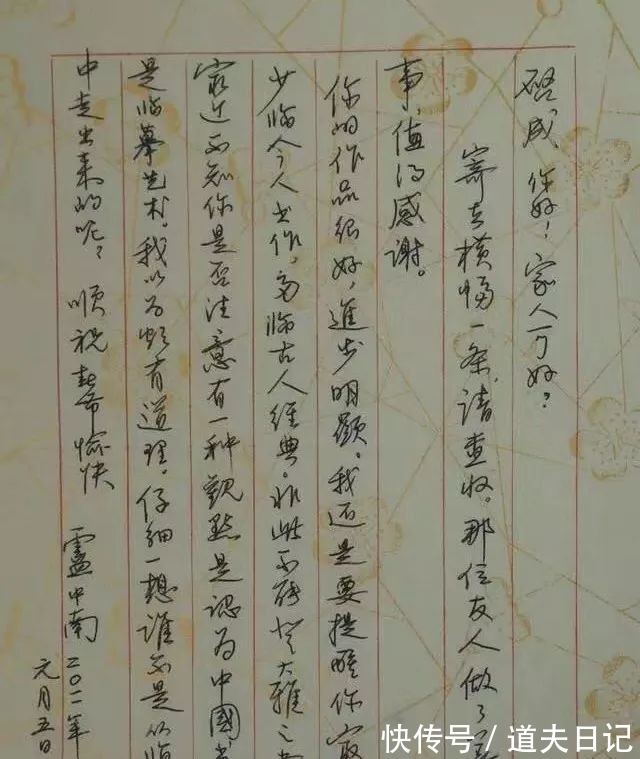 你好！家人可好？
寄去横幅一条，请查收。那位友人做了
事，值得感谢。
你的作品很好，進步明顯。我还是要提醒你最
少临今人书作，多临古人經典。非此不能登大雅之
最近不知你是否注意有一种觀點是認为中國书
是临摹艺术。我以为颇有道理。仔细一想谁不是从临
中走出来的呢？ 顺祝春节愉快
盧中南 二〇一一年
元月五日
快传号/道夫日记